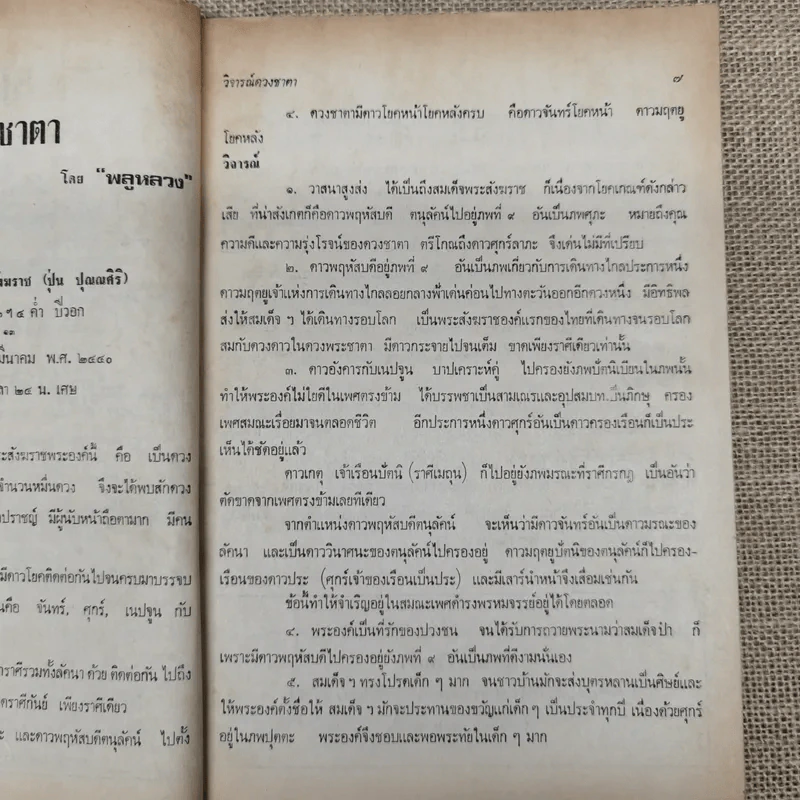 ชาตา
โดย "พลูหลวง"
ังฆราช (ปุ่น ปุณณสิริ)
ค่ำ ปีวอก
๑๓
มีนาคม พ.ศ. ๒๔๔๐
า ๒๔ น. เศษ
ะสังฆราชพระองค์นี้ คือ เป็นดวง
จำนวนหมื่นดวง จึงจะได้พบสักดวง
ปราชญ์ มีผู้นับหน้าถือตามาก มีคน
มีดาวโยคติดต่อกันไปจนครบมาบรรจบ
นคือ จันทร์, ศุกร์, เนปจูน กับ
าราศีรวมทั้งลัคนา ด้วย ติดต่อกัน ไปถึง
ตราศีกันย์ เพียงราศีเดียว
ะ และดาวพฤหัสบดีตนุลัคน์ ไปตั้ง
วิจารณ์ดวงชาตา ๗
๔. ดวงชาตามีดาวโยคหน้าโยคหลังครบ คือดาวจันทร์โยคหน้า ดาวมฤตยู
โยคหลัง
วิจารณ์
๑. วาสนาสูงส่ง ได้เป็นถึงสมเด็จพระสังฆราช ก็เนื่องจากโยคเกณฑ์ดังกล่าว
เสีย ที่น่าสังเกตก็คือดาวพฤหัสบดี ตนุลัคน์ไปอยู่ภพที่ ๙ อันเป็นภพศุภะ หมายถึงคุณ
ความดีและความรุ่งโรจน์ของดวงชาตา ตรีโกณถึงดาวศุกร์ลาภะ จึงเด่นไม่มีที่เปรียบ
๒. ดาวพฤหัสบดีอยู่ภพที่ ๙ อันเป็นภพเกี่ยวกับการเดินทางไกลประการหนึ่ง
ดาวมฤตยูเจ้าแห่งการเดินทางไกลลอยกลางฟ้าเด่นก่อนไปทางตะวันออกอีกดวงหนึ่ง มีอิทธิพล
ส่งให้สมเด็จ ฯ ได้เดินทางรอบโลก เป็นพระสังฆราชองค์แรกของไทยที่เดินทางจนรอบโลก
สมกับดวงดาวในดวงพระชาตา มีดาวกระจายไปจนเต็ม ขาดเพียงราศีเดียวเท่านั้น
๓. ดาวอังคารกับเนปจูน บาปเคราะห์คู่ ไปครองยังภพปัตนิเบียนในภพนั้น
ทำให้พระองค์ไม่ใยดีในเพศตรงข้าม ได้บรรพชาเป็นสามเณรและอุปสมบทเป็นภิกษุ ครอง
เพศสมณะเรื่อยมาจนตลอดชีวิต อีกประการหนึ่งดาวศุกร์อันเป็นดาวครองเรือนก็เป็นประ
เห็นได้ชัดอยู่แล้ว
ดาวเกตุ เจ้าเรือนปัตนิ (ราศีเมถุน) ก็ไปอยู่ยังภพมรณะที่ราศีกรกฎ เป็นอันว่า
ตัดขาดจากเพศตรงข้ามเลยทีเดียว
จากตำแหน่งดาวพฤหัสบดีตนุลัคน์ จะเห็นว่ามีดาวจันทร์อันเป็นดาวมรณะของ
ลัคนา และเป็นดาววินาศนะของตนุลัคน์ไปครองอยู่ ดาวมฤตยูปัตนิของตนุลัคน์ก็ไปครอง-
เรือนของดาวประ (ศุกร์เจ้าของเรือนเป็นประ) และมีเสาร์นำหน้าจึงเสื่อมเช่นกัน
ข้อนี้ทำให้จำเริญอยู่ในสมณะเพศดำรงพรหมจรรย์อยู่ได้โดยตลอด
๔. พระองค์เป็นที่รักของปวงชน จนได้รับการถวายพระนามว่าสมเด็จป๋า ก็
เพราะมีดาวพฤหัสบดีไปครองอยู่ยังภพที่ ๙ อันเป็นภพที่ดีงามนั่นเอง
๕. สมเด็จ ฯ ทรงโปรดเด็ก ๆ มาก จนชาวบ้านมักจะส่งบุตรหลานเป็นศิษย์และ
ให้พระองค์ตั้งชื่อให้ สมเด็จ ฯ มักจะประทานของขวัญแก่เด็ก ๆ เป็นประจำทุกปี เนื่องด้วยศุกร์
อยู่ในภพปุตตะ พระองค์จึงชอบและพอพระทัยในเด็ก ๆ มาก